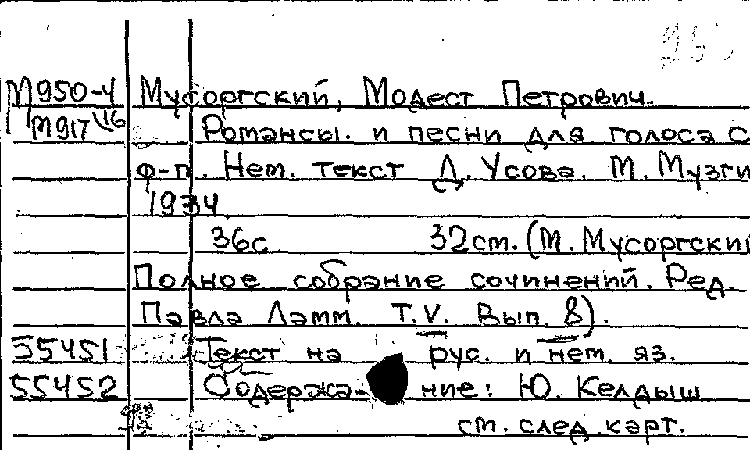 М950-4 Мусоргский, Модест Петрович.
М917 Романсы. и песни для голоса с
ф-п. Нем. текст Д. Усова. М. Музги
1934
36с 32см. (М. Мусоргский
Полное собрание сочинений. Ред.
Павла Ламм. Т. V. Вып. 8).
55451 Текст на рус. и нем. яз.
55452 Содержание: Ю. Келдыш
см. след. карт.